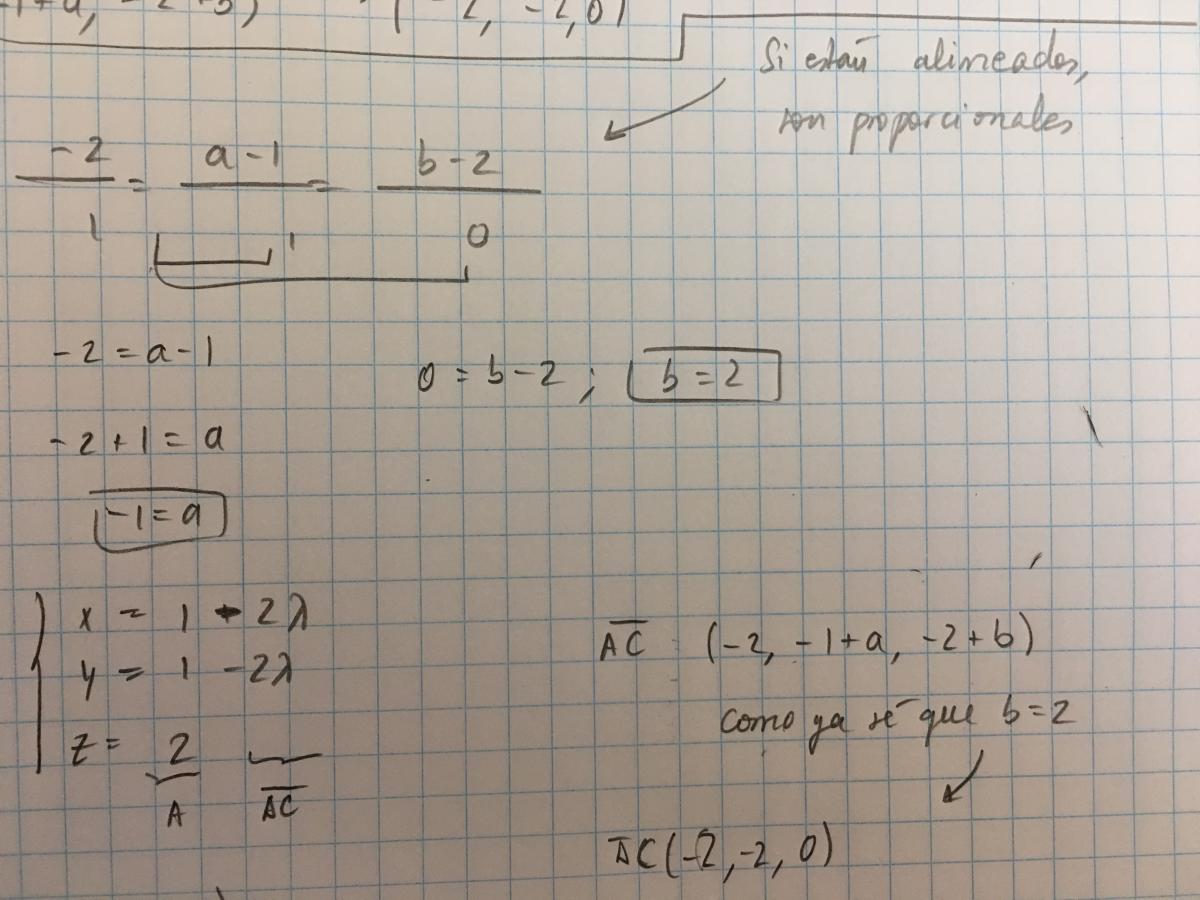 -1+a, -2+b) (-2, -2, 0)
Si están alineados,
son proporcionales
-2/1 = a-1/1 = b-2/0
-2 = a-1
0 = b-2 ; b = 2
-2+1 = a
-1 = a
x = 1 - 2λ
y = 1 - 2λ
z = 2
A
AC
AC (-2, -1+a, -2+b)
como ya sé que b=2
AC (-2, -2, 0)